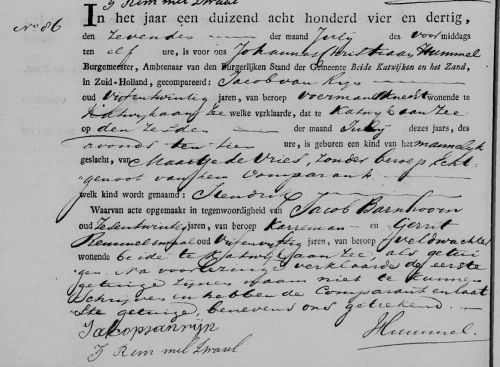 No 86
In het jaar een duizend acht honderd vier en dertig,
den zevenden der maand July des voormiddags
ten elf ure, is voor ons Johannes Hummel
Burgemeester, Ambtenaar van den Burgerlijken Stand der Gemeente Beide Katwijken en het Zand,
in Zuid-Holland, gecompareerd: Jacob van Ryn
oud Vijfentwintig jaren, van beroep Voermansknecht wonende te
Katwyk aan Zee welke verklaarde, dat te Katwyk aan Zee
op den Zesden der maand July dezes jaars, des
avonds ten tien ure, is geboren een kind van het mannelyk
geslacht, van Maartje de Vries, zonder beroep, Echt-
genoot van hem Comparant
welk kind wordt genaamd: Hendrik
Waarvan acte opgemaakt in tegenwoordigheid van Jacob Barnhoorn
oud jaren, van beroep Karreman en Gerrit
oud jaren, van beroep Veldwachter
wonende beide te Katwyk aan Zee, als getui-
gen. Na voorlezinge verklaarde de eerste
getuige zynen naam niet te kunnen
schryven en hebben de Comparant en laat-
ste getuige, benevens ons geteekend.
Jakop van rijn
Hummel.